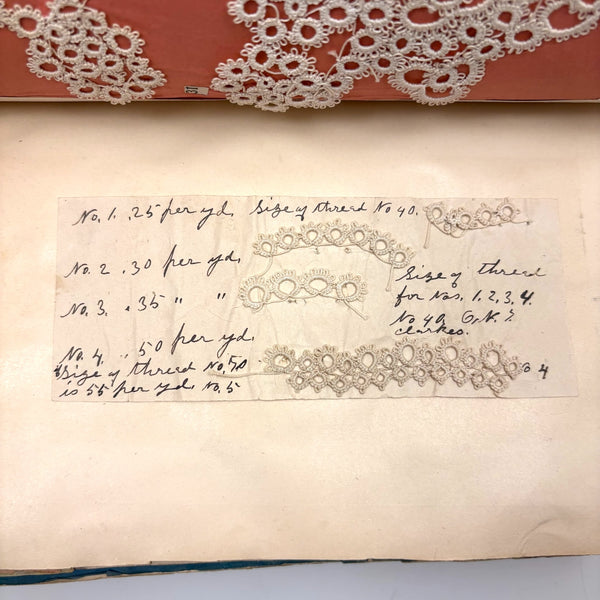 31
No. 1. .25 per yd. Size of thread No 40.
No. 2 .30 per yd.
No. 3. .35 " "
Size of thread
for Nos. 1, 2, 3, 4.
No 40. O.N.T.
Clarkes.
No. 4. .50 per yd.
Size of thread No. 50
is 55 per yd. No. 5
4